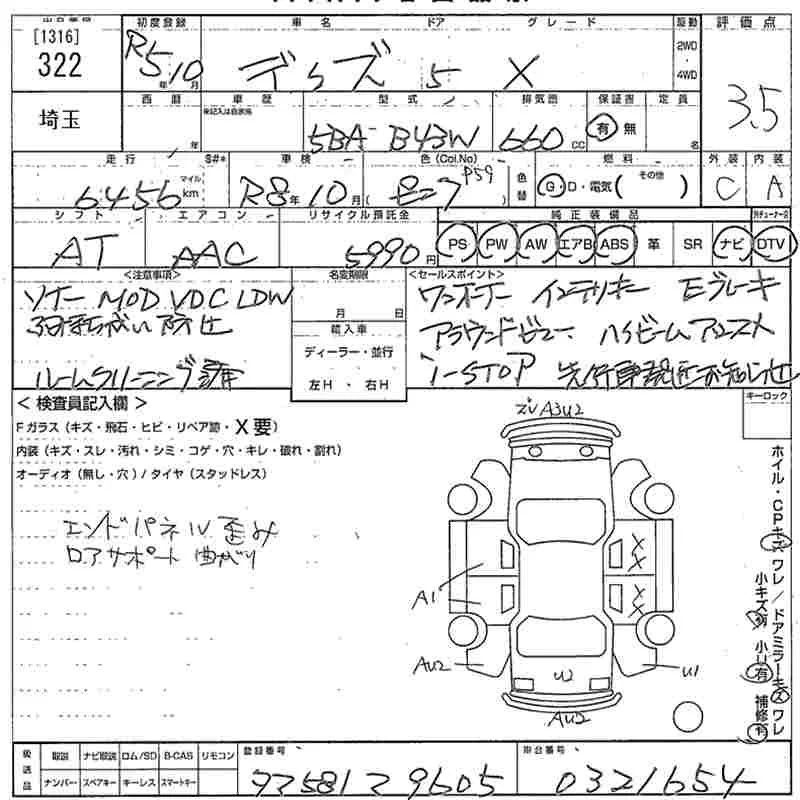 初度登録 車名 ドア グレード 駆動 評価点
[1316]
322
R5年10月 デイズ 5 X 2WD・4WD 3.5
埼玉
西暦 車歴 型式 排気量 保証書 定員
※記入は自家用
年 5BA-B43W 660CC 有 無 名
走行 S#* 車検 色(Col.No) 燃料 外装 内装
6456 マイル km R8年10月 ( ピンク P59 ) 色替 G・D・電気( その他 ) C A
シフト エアコン リサイクル預託金 純正装備品
AT AAC 5990円 PS PW AW エアB ABS 革 SR ナビ DTV
<注意事項> 名変期限 <セールスポイント>
ソナー MOD VDC LDW 月 日 ワンオーナー インテリキー Eブレーキ
輸入車 アラウンドビュー ハイビームアシスト
ルームクリーニング済 ディーラー・並行 I-STOP
左H ・ 右H
< 検査員記入欄 > キーロック
Fガラス(キズ・飛石・ヒビ・リペア跡・X要)
内装(キズ・スレ・汚れ・シミ・コゲ・穴・キレ・破れ・割れ)
オーディオ(無し・穴)/タイヤ(スタッドレス)
エンドパネル歪み
ロアサポート曲がり
A3U2
X X
X X
A1
AU2 U2 U1
AU2
ホイル・CPキズ ワレ/ドアミラーキズ ワレ
小キズ有 小U有 補修有
後送品 取説 ナビ取説 ロム/SD B-CAS リモコン 登録番号 車台番号
ナンバー スペアキー キーレス スマートキー 0321654